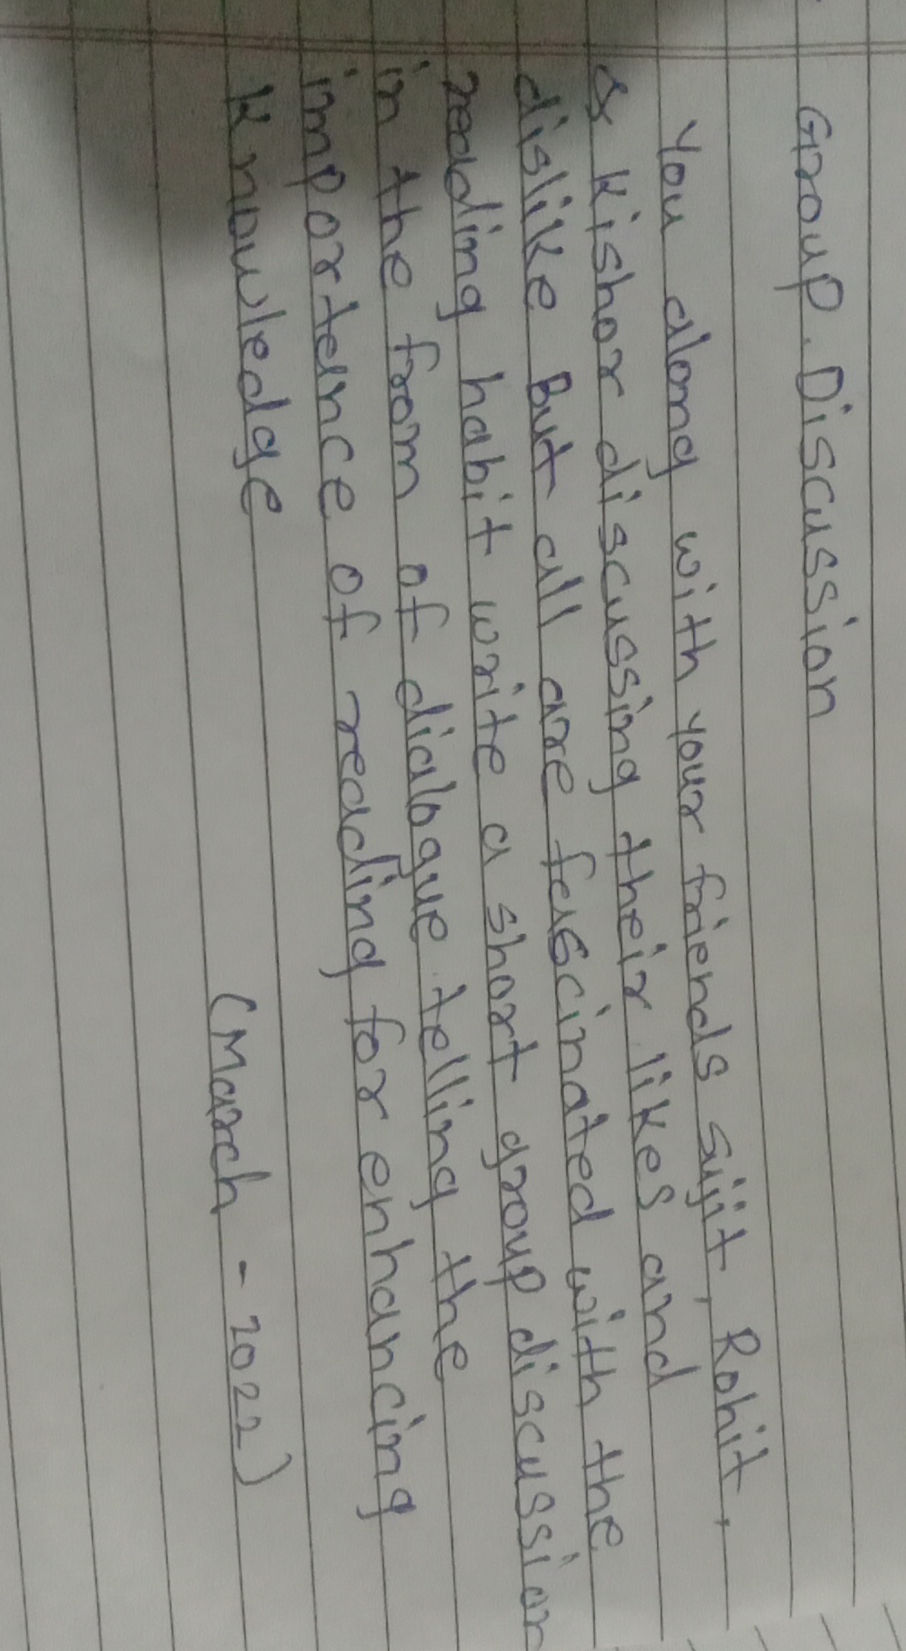 Group. Discussion
You along with your friends sujit, Rohit,
& kishor discussing their likes and
dislike But all are fascinated with the
reading habit write a short group discussion
in the from of dialogue telling the
importance of reading for enhancing
knowledge
(March - 2022)